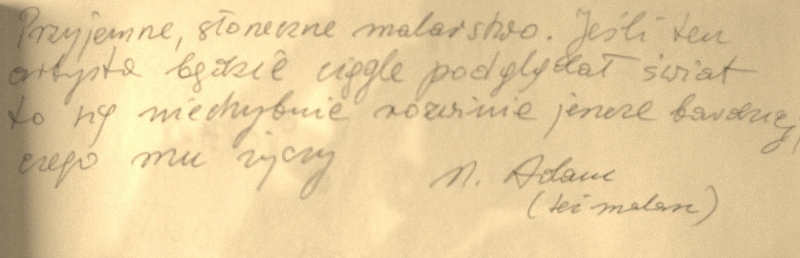 Przyjemne, słoneczne malarstwo. Jeśli ten
artysta będzie ciągle podglądał świat
to się niechybnie rozwinie jeszcze bardziej,
czego mu życzy
N. Adam
(też malarz)